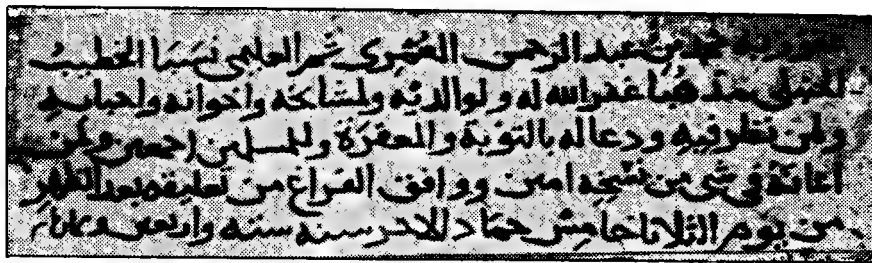 عفو ربه محمد بن عبد الرحمن العمري شهر العليمي نسبا الخطيب
الحنبلي مذهبا غفر الله له ولوالديه ولمشايخه واخوانه واحبابه
ولمن نظر فيه ودعا له بالتوبة والمغفرة وللمسلمين اجمعين ولمن
اعانه في شي من نسخه امين ووافق الفراغ من تعليقه بعد الظهر
من يوم الثلاثا خامس جماد الاخر سنه سته واربعين وثمان